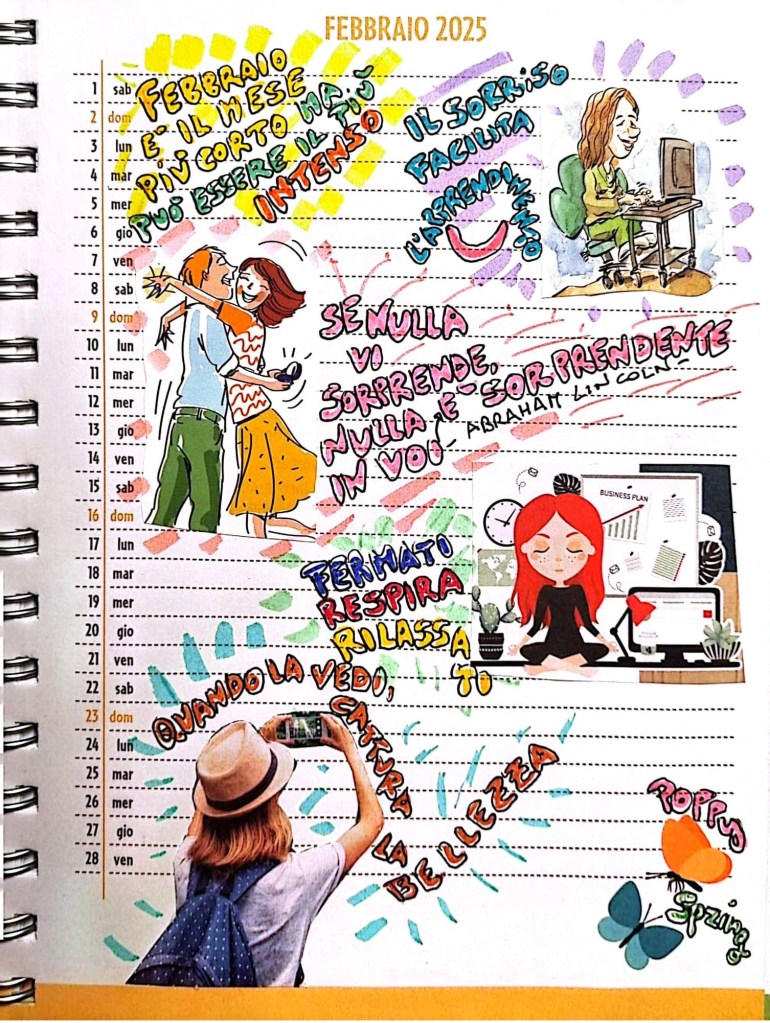 FEBBRAIO 2025
1 sab
2 dom
3 lun
4 mar
5 mer
6 gio
7 ven
8 sab
9 dom
10 lun
11 mar
12 mer
13 gio
14 ven
15 sab
16 dom
17 lun
18 mar
19 mer
20 gio
21 ven
22 sab
23 dom
24 lun
25 mar
26 mer
27 gio
28 ven
FEBBRAIO
E' IL MESE
PIÙ CORTO MA
PUÒ ESSERE IL PIÙ
INTENSO
IL SORRISO
FACILITA
L'APPRENDIMENTO
SE NULLA
VI
SORPRENDE,
NULLA È SORPRENDENTE
IN VOI - ABRAHAM LINCOLN -
BUSINESS PLAN
FERMATI
RESPIRA
RILASSA
TI
QUANDO LA VEDI,
CATTURA
LA
BELLEZZA
POPPY
Spring